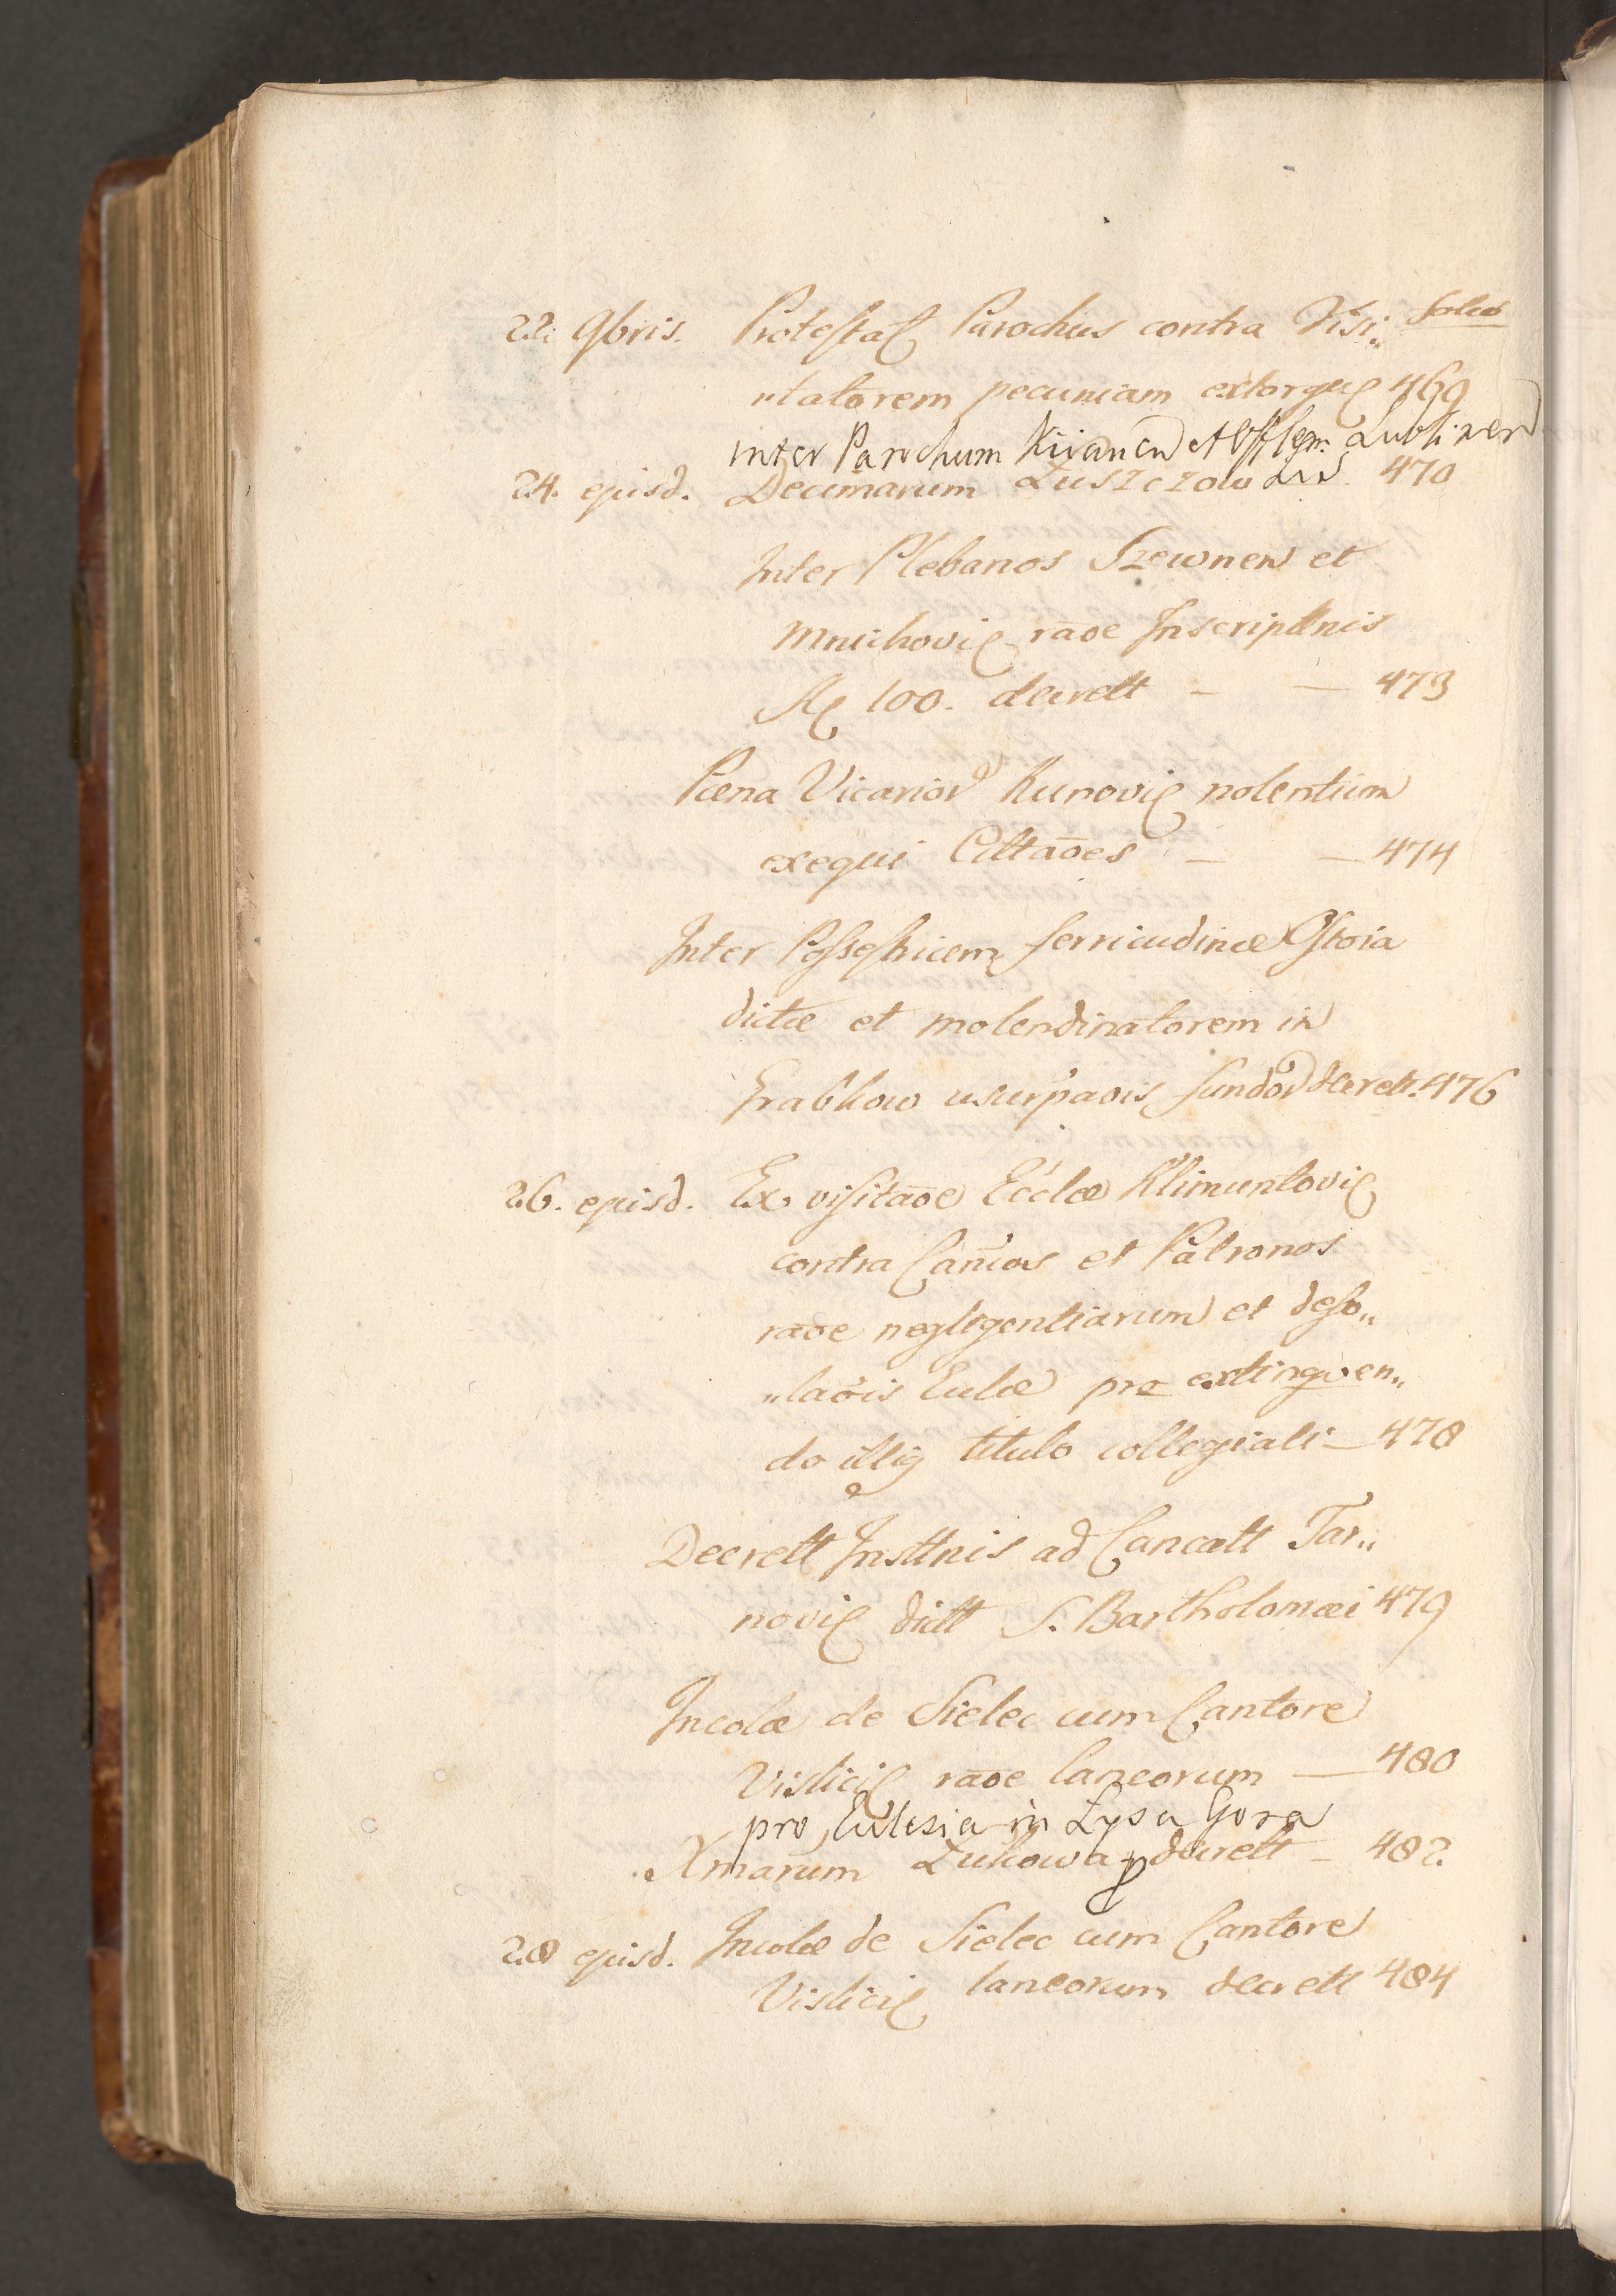 22. 9bris. Protestat Parochus contra Visi„ folus
„tatorem pecuniam extorqu 469
inter Parochum Kiianen et Lublinen
24. ejusd. Decimarum Łuszczow Lis 470
Inter Plebanos Szewnen et
Mnichovi raõe Inscriptnis
100. decrett – — 473
Pœna Vicarior Kunovi nolentium
exequi Cittaões – — 474
Inter Possestricem ferricudinæ Ostoia
dictæ et molendinatorem in
Grabkow usurpaois fundor decrett. 476
26. ejusd. Ex visitaõe Ecclæ Klimuntovi
contra Canĩcos et Patronos
raõe negligentiarum et deso„
„laõis Ecclæ pro extingven„
do illig titulo collegiali — 478
Decrett Insttnis ad Cancatt Tar„
novi dictt S. Bartholomæi 479
Incolæ de Sielec cum Cantore
Vislici raõe laneorum — 480
pro Ecclesia in Lysa Gora
Xmarum Zukowa decrett – 482
28 ejusd. Incolæ de Sielec cum Cantore
Vislici laneorum decrett 484